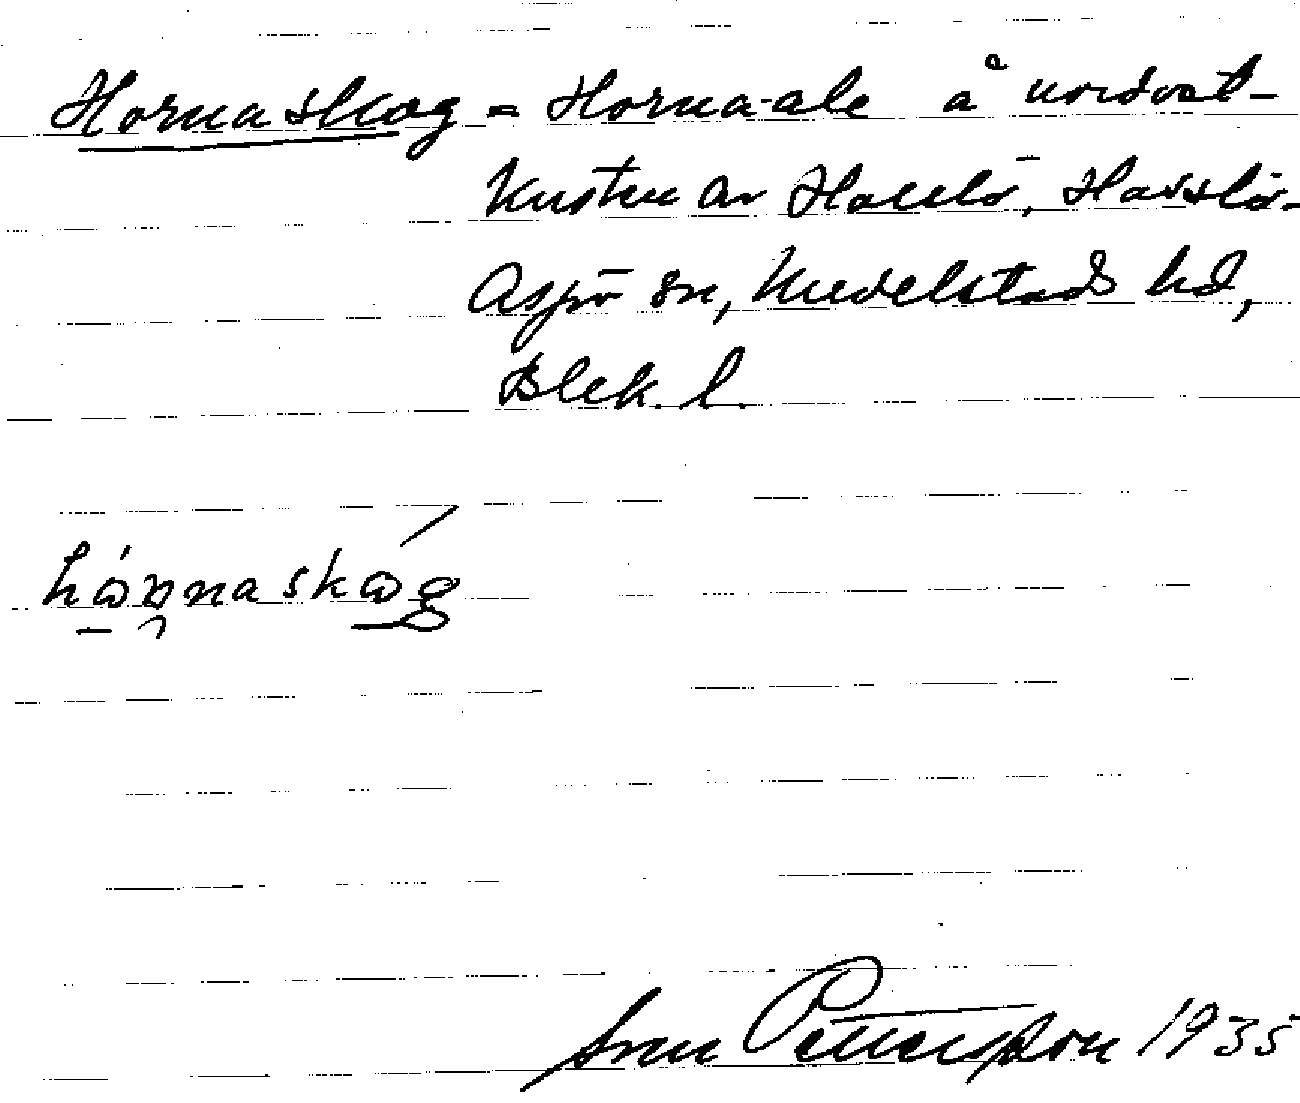 Hornaskog = Horna-ale å nordväst-
kusten av Hallö, Hasslö-
Aspö sn, Medelstads hd,
Blek. l.
Sven Pettersson 1935